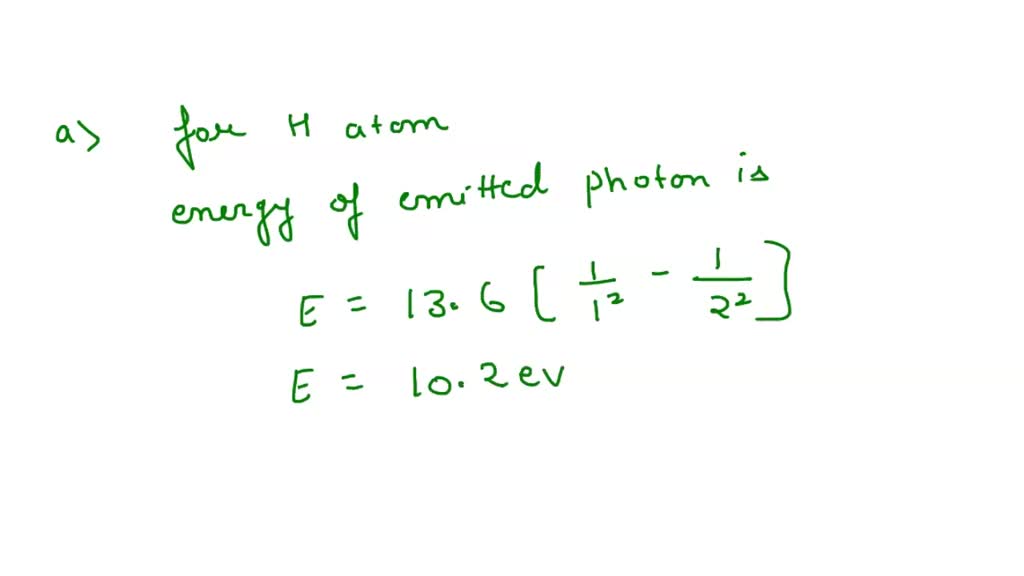 a> for H atom
energy of emitted photon is
E = 13.6 [ 1/1² - 1/2² ]
E = 10.2 ev